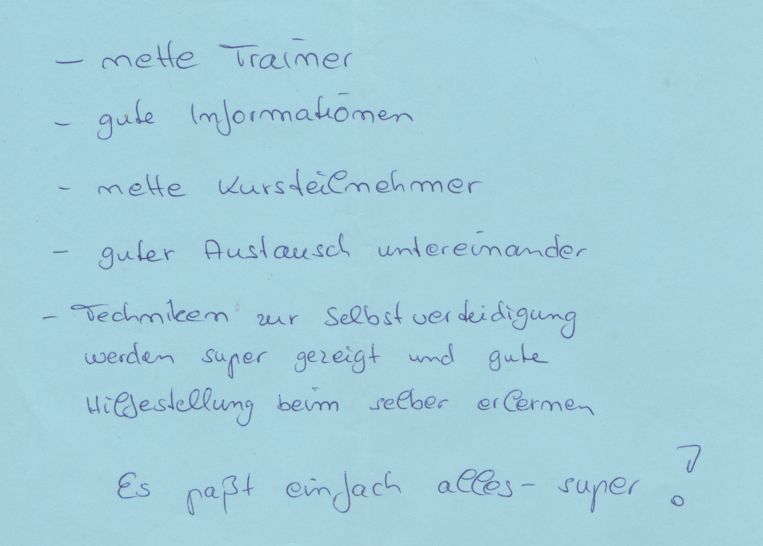 - nette Trainer
- gute Informationen
- nette Kursteilnehmer
- guter Austausch untereinander
- Techniken zur Selbstverteidigung
werden super gezeigt und gute
Hilfestellung beim selber erlernen
Es paßt einfach alles - super!